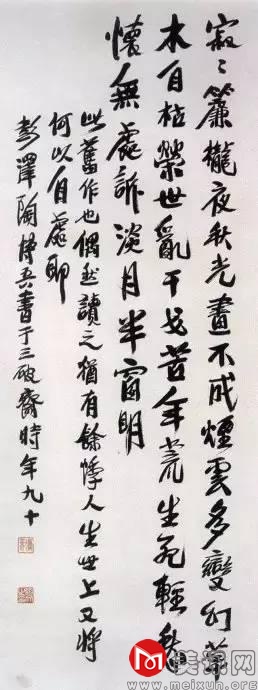 寂〻簾櫳夜秋光畫不成煙雲多變幻草
木自枯榮世亂干戈苦年荒生死輕愁
懷無處訴淡月半窗明
此舊作也偶然讀之猶有餘悸人生世上又將
何以自處耶
彭澤陶博吾書于三破齋時年九十
美讯网
www.meixun.org